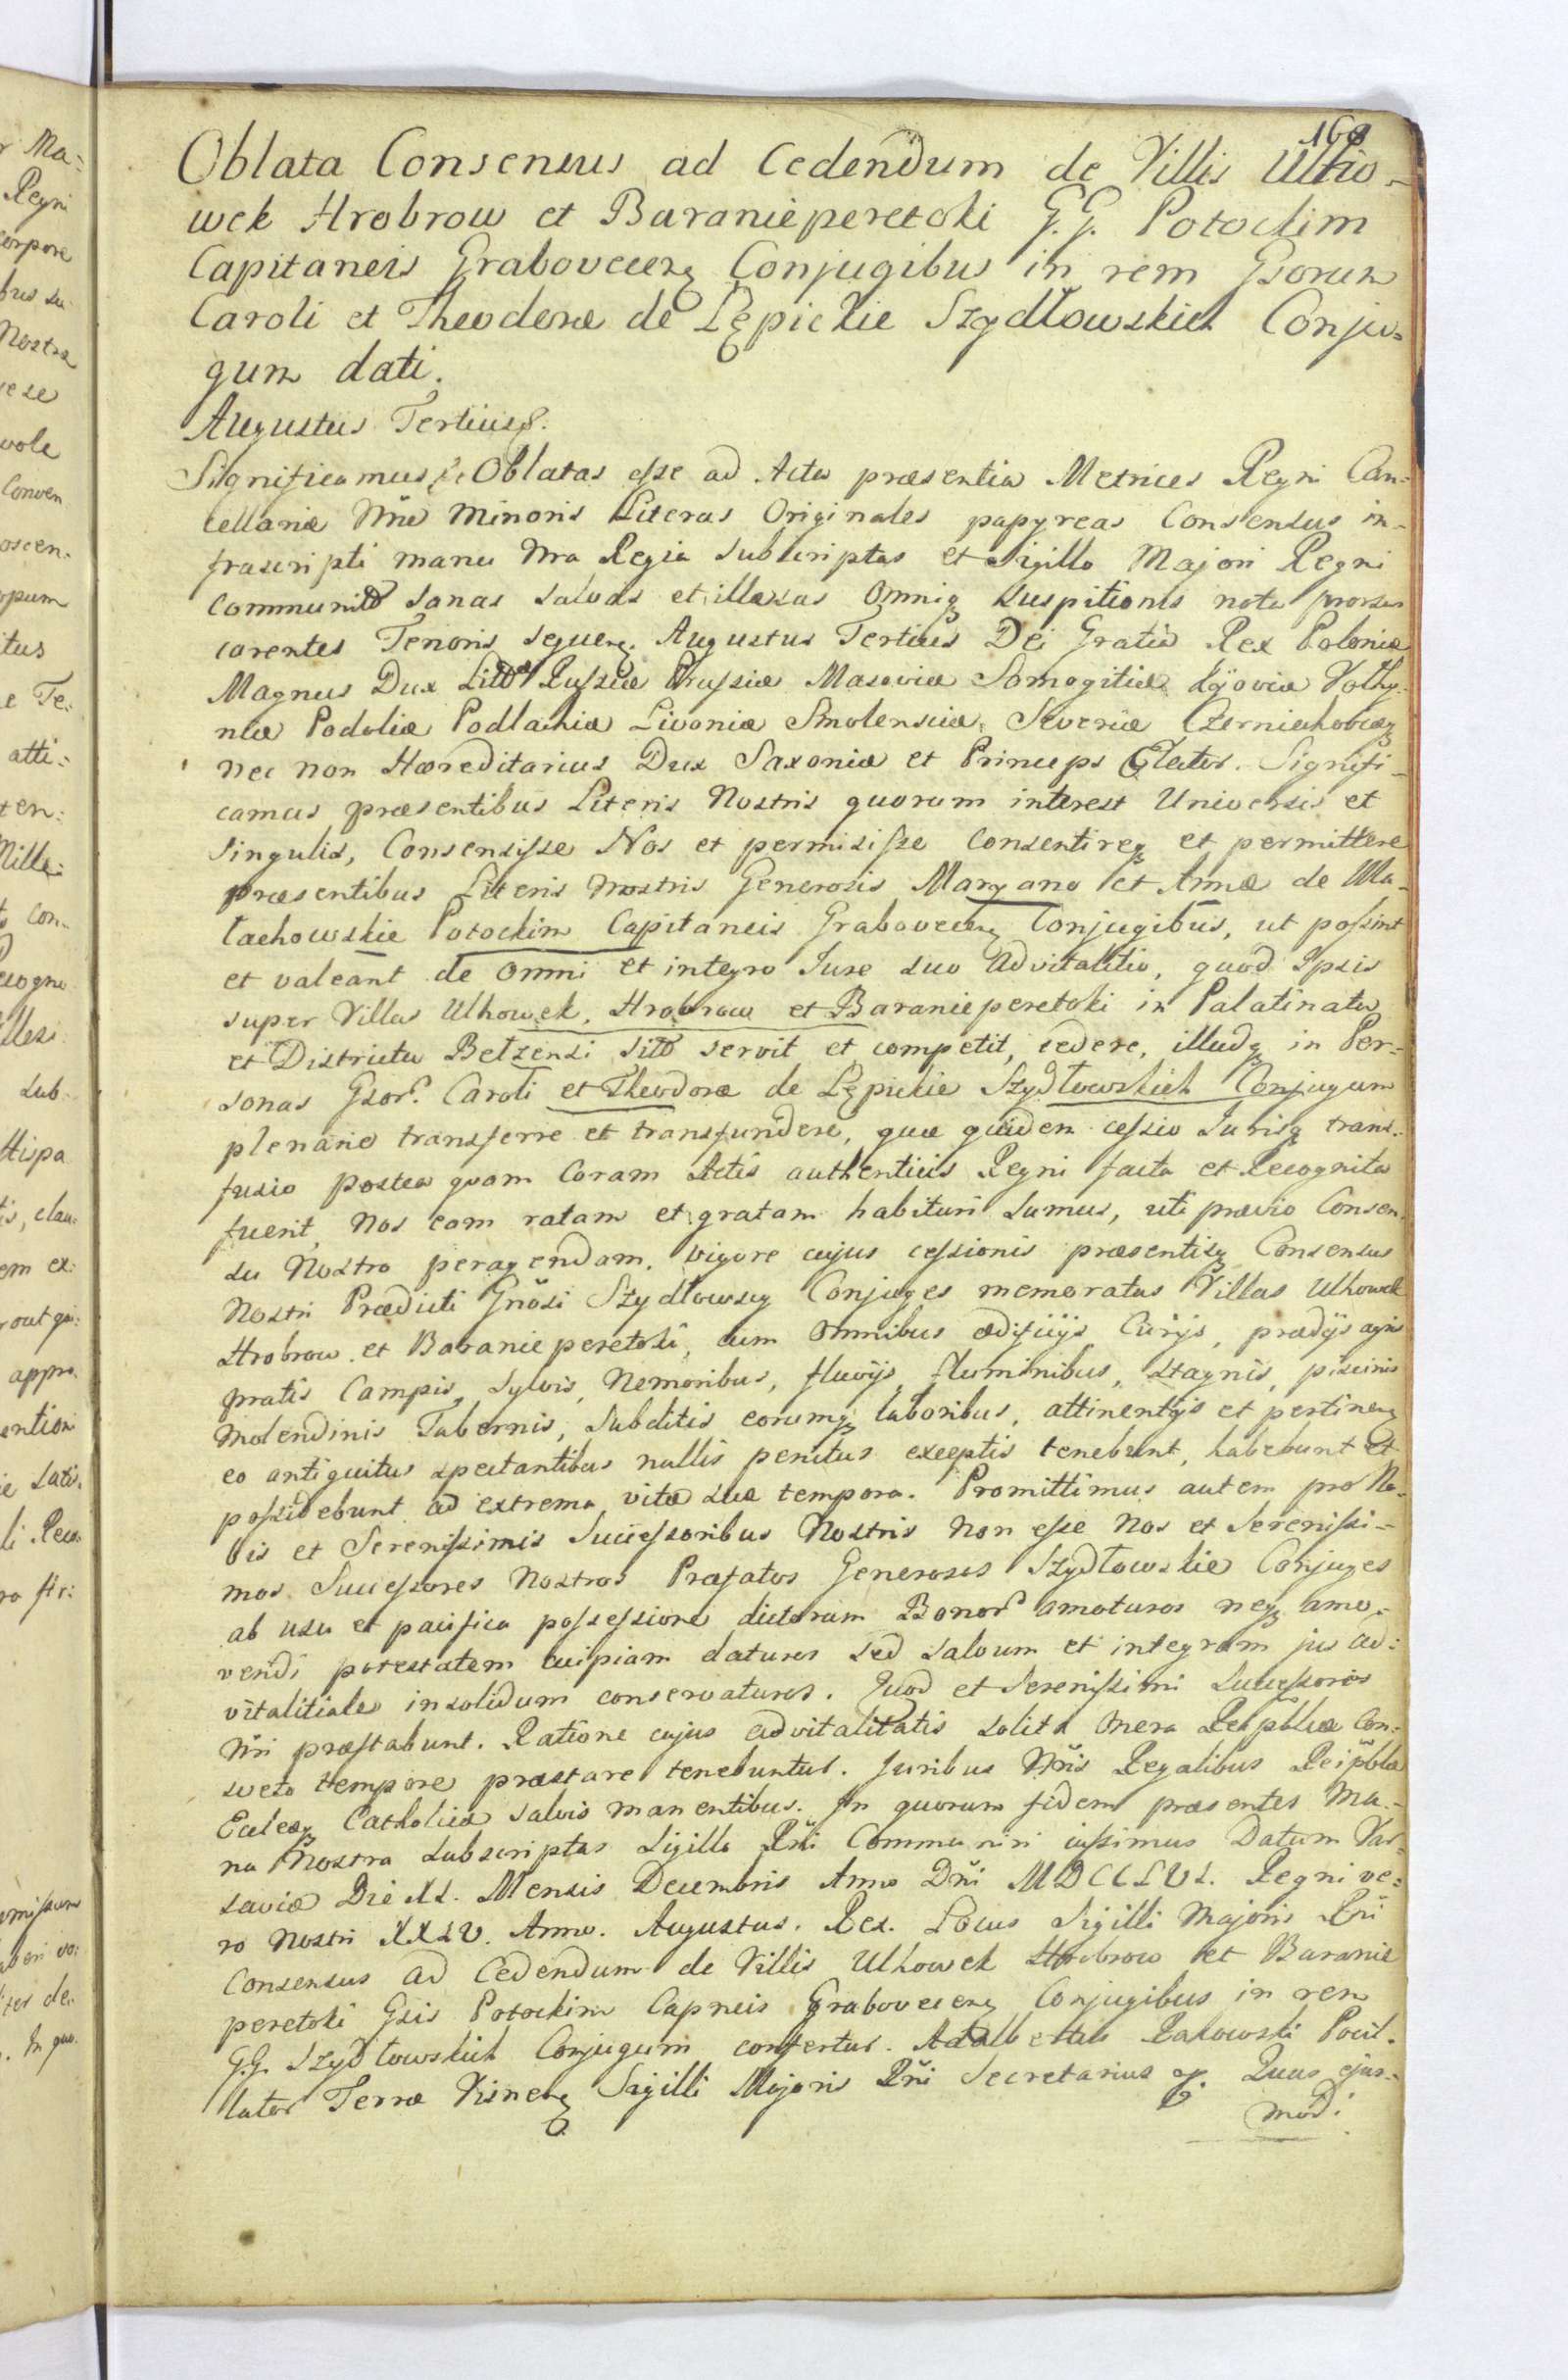 168
Oblata Consensus ad Cedendum de Villis Ulho-
wek Hrobrow et Baranieperetoki G.G. Potockim
Capitaneis Grabovecenꝫ Conjugibus in rem Gsorum
Caroli et Theodoræ de Łępickie Szydłowskich Conju-
gum dati.
Augustus Tertius
Significamus Oblatas esse ad Acta præsentia Metrices Regni Can-
cellariæ Nræ Minoris Literas Originales papyreas Consensus in-
frascripti manu Nra Regia subscriptas et Sigillo Majori Regni
communitas sanas salvas et illæsas omniqꝫ suspitionis nota prorsus
carentes Tenoris sequenꝫ. Augustus Tertius Dei Gratia Rex Poloniæ
Magnus Dux Litt Russiæ Prussiæ Masoviæ Samogitiæ Kijoviæ Volhy-
niæ Podoliæ Podlachiæ Livoniæ Smolensciæ Severiæ Czerniechoviæqꝫ
nec non Hæreditarius Dux Saxoniæ et Princeps Elector. Signifi-
camus præsentibus Literis Nostris quorum interest Universis et
Singulis, Consensisse Nos et permisisse consentireqꝫ et permittere
præsentibus Literis Nostris Generosis Maryano et Annæ de Ma-
łachowskie Potockim Capitaneis Grabovecenꝫ Conjugibus, ut possint
et valeant de omni et integro Jure suo Advitalitio, quod Ipsis
super Villas Ulhowek, Hrobrow et Baranieperetoki in Palatinatu
et Districtu Belzensi sitas servit et competit, cedere, illudqꝫ in Per-
sonas Gsor. Caroli et Theodoræ de Łępickie Szydłowskich Conjugum
plenarie transferre et transfundere, quæ quidem cessio Jurisqꝫ trans-
fusio postea quam Coram Actis authenticis Regni facta et Recognita
fuerit, Nos eam ratam et gratam habituri sumus, uti prævio Consen-
su Nostro peragendam, vigore cujus cessionis præsentisqꝫ Consensus
Nostri Prædicti Gnosi Szydłowscy Conjuges memoratas Villas Ulhowek
Hrobrow et Baranieperetoki, cum omnibus ædificijs Curijs, prædijs agris
pratis Campis, Sylvis, Nemoribus, fluvijs, fluminibus, stagnis, piscinis
Molendinis Tabernis, Subditis eorumqꝫ laboribus, attinentijs et pertinenꝫ
eo antiquitus spectantibus nullis penitus exceptis tenebunt, habebunt et
possidebunt ad extrema vitæ suæ tempora. Promittimus autem pro No-
bis et Serenissimis Successoribus Nostris Non esse Nos et Serenissi-
mos Successores Nostros Præfatos Generosos Szydłowskie Conjuges
ab usu et pacifica possessione dictorum Bonor amoturos neqꝫ amo-
vendi potestatem cuipiam daturos sed salvum et integrum jus ad-
vitalitiale insolidum conservaturos. Quod et Serenissimi Successores
Nri præstabunt. Ratione cujus advitalitatis solita onera Reipblicæ con-
sveto tempore præstare tenebuntur. Juribus Nris Regalibus Reipblæ
Eccleæqꝫ Catholicæ salvis manentibus. In quorum fidem præsentes Ma-
nu Nostra subscriptas Sigillo Rni Communiri jussimus Datum Var-
saviæ Die XI. Mensis Decembris Anno Dni MDCCLVI. Regni ve-
ro Nostri XXIV. Anno. Augustus. Rex. Locus Sigilli Majoris Rni
Consensus ad Cedendum de Villis Ulhowek Hrobrow et Baranie
peretoki Gsis Potockim Capneis Grabovecenꝫ Conjugibus in rem
G.G. Szydłowskich Conjugum confertur. Adalbertus Rakowski Pocil-
lator Terræ Visnenꝫ Sigilli Majoris Rni Secretarius Quas ejus-
modi